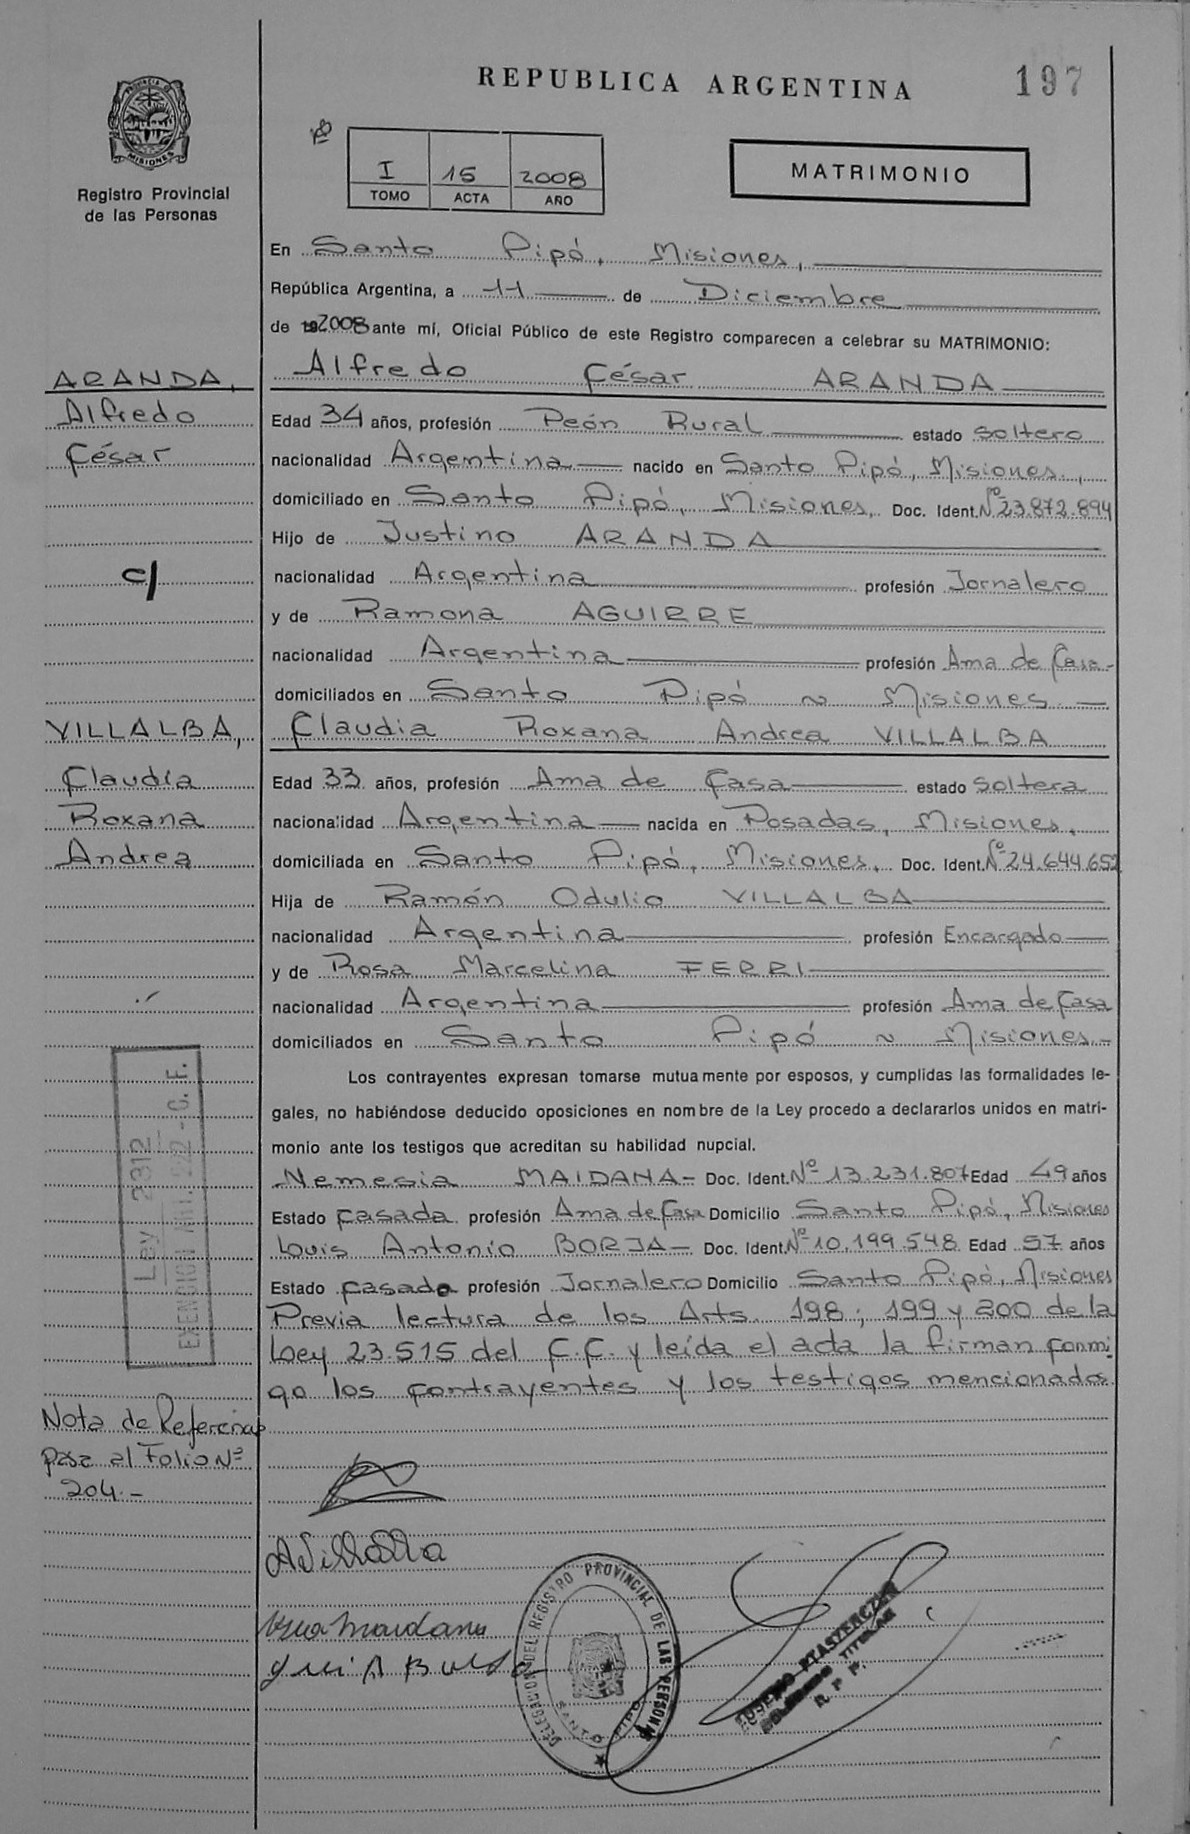 REPUBLICA ARGENTINA
197
PROVINCIA DE
MISIONES
Registro Provincial
de las Personas
Nº
I 15 2008
TOMO ACTA AÑO
MATRIMONIO
En Santo Pipó, Misiones,
República Argentina, a 11 de Diciembre
de 192008 ante mí, Oficial Público de este Registro comparecen a celebrar su MATRIMONIO:
ARANDA,
Alfredo
César
c/
VILLALBA,
Claudia
Roxana
Andrea
Alfredo César ARANDA
Edad 34 años, profesión Peón Rural estado soltero
nacionalidad Argentina nacido en Santo Pipó, Misiones,
domiciliado en Santo Pipó, Misiones, Doc. Ident. Nº 23.872.894
Hijo de Justino ARANDA
nacionalidad Argentina profesión Jornalero
y de Ramona AGUIRRE
nacionalidad Argentina profesión Ama de Casa-
domiciliados en Santo Pipó ~ Misiones.-
Claudia Roxana Andrea VILLALBA
Edad 33 años, profesión Ama de Casa estado soltera
nacionalidad Argentina nacida en Posadas, Misiones,
domiciliada en Santo Pipó, Misiones, Doc. Ident. Nº 24.644.652
Hija de Ramón Odulio VILLALBA
nacionalidad Argentina profesión Encargado
y de Rosa Marcelina FERRI
nacionalidad Argentina profesión Ama de Casa
domiciliados en Santo Pipó ~ Misiones.-
Los contrayentes expresan tomarse mutuamente por esposos, y cumplidas las formalidades le-
gales, no habiéndose deducido oposiciones en nombre de la Ley procedo a declararlos unidos en matri-
monio ante los testigos que acreditan su habilidad nupcial.
Nemesia MAIDANA- Doc. Ident. Nº 13.231.807 Edad 49 años
Estado casada profesión Ama de Casa Domicilio Santo Pipó, Misiones
Louis Antonio BORJA- Doc. Ident. Nº 10.199.548 Edad 57 años
Estado casado profesión Jornalero Domicilio Santo Pipó, Misiones
Previa lectura de los Arts. 198; 199 y 200 de la
Ley 23.515 del C.C. y leída el acta la firman conmi-
go los contrayentes y los testigos mencionados.
Ley 2312
EXENCION
Nota de Referencias
pase al Folio Nº
204.-
AVillalba
Maidana
DELEGACION DEL REGISTRO PROVINCIAL DE LAS PERSONAS
SANTO PIPO
TITULAR
R. P. P.